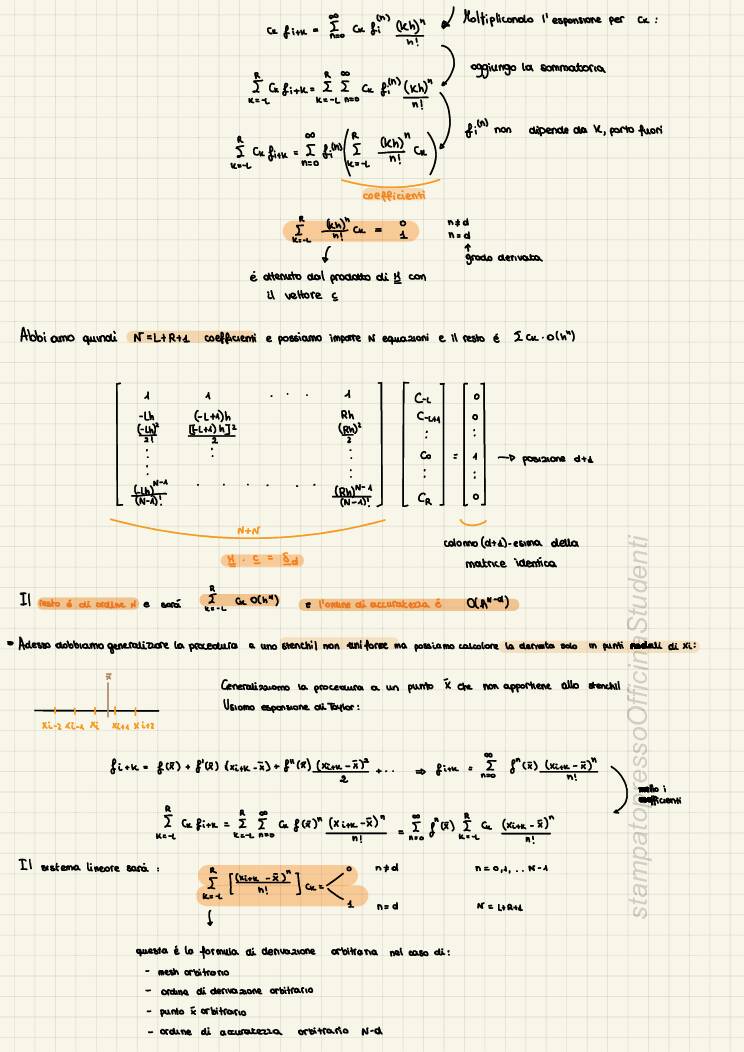 Cₖ fᵢ₊ₖ = Σₙ₌₀^∞ Cₖ fᵢ⁽ⁿ⁾ (kh)ⁿ/n!   Moltiplicando l'espansione per Cₖ :
Σₖ₌₋L^R Cₖ fᵢ₊ₖ = Σₖ₌₋L^R Σₙ₌₀^∞ Cₖ fᵢ⁽ⁿ⁾ (kh)ⁿ/n!   aggiungo la sommatoria
Σₖ₌₋L^R Cₖ fᵢ₊ₖ = Σₙ₌₀^∞ fᵢ⁽ⁿ⁾ ( Σₖ₌₋L^R (kh)ⁿ/n! Cₖ )   fᵢ⁽ⁿ⁾ non dipende da K, porto fuori
coefficienti
Σₖ₌₋L^R (kh)ⁿ/n! Cₖ = 0   n≠d
1   n=d
grado derivata
é ottenuto dal prodotto di M con
il vettore c
Abbiamo quindi N=L+R+1 coefficienti e possiamo imporre N equazioni e il resto é ΣCₖ·O(hᴺ)
1   1   · · ·   1   C-L   0
-Lh   (-L+1)h   Rh   C-L+1   0
(-Lh)²/2!   [(-L+1)h]²/2   (Rh)²/2   :   :
:   :   :   C₀   =   1   → posizione d+1
:   :   :   :
(-Lh)ᴺ⁻¹/(N-1)!   · · · · ·   (Rh)ᴺ⁻¹/(N-1)!   CR   0
N+N
colonna (d+1)-esima della
matrice identica
M · c = δd
Il resto é di ordine N e sará Σₖ₌₋L^R Cₖ O(hᴺ) e l'ordine di accuratezza é O(hᴺ⁻ᵈ)
- Adesso dobbiamo generalizzare la procedura a uno stenchil non uniforme ma possiamo calcolare la derivata solo in punti nodali di xi:
x̄
xi-2 xi-1 xi xi+1 xi+2
Generalizziamo la procedura a un punto x̄ che non appartiene allo stenchil
Usiamo espansione di Taylor:
fᵢ₊ₖ = f(x̄) + f'(x̄) (xᵢ₊ₖ-x̄) + f''(x̄) (xᵢ₊ₖ-x̄)²/2 + ...  ⇒  fᵢ₊ₖ = Σₙ₌₀^∞ fⁿ(x̄) (xᵢ₊ₖ-x̄)ⁿ/n!
metto i
coefficienti
Σₖ₌₋L^R Cₖ fᵢ₊ₖ = Σₖ₌₋L^R Σₙ₌₀^∞ Cₖ f(x̄)ⁿ (xᵢ₊ₖ-x̄)ⁿ/n! = Σₙ₌₀^∞ fⁿ(x̄) Σₖ₌₋L^R Cₖ (xᵢ₊ₖ-x̄)ⁿ/n!
Il sistema lineare sará :   Σₖ₌₋L^R [(xᵢ₊ₖ-x̄)ⁿ/n!] Cₖ =   0   n≠d   n=0,1,..N-1
1   n=d   N=L+R+1
questa é la formula di derivazione arbitraria nel caso di:
- mesh arbitrario
- ordine di derivazione arbitrario
- punto x̄ arbitrario
- ordine di accuratezza arbitrario N-d
stampatopressoOfficinaStudenti